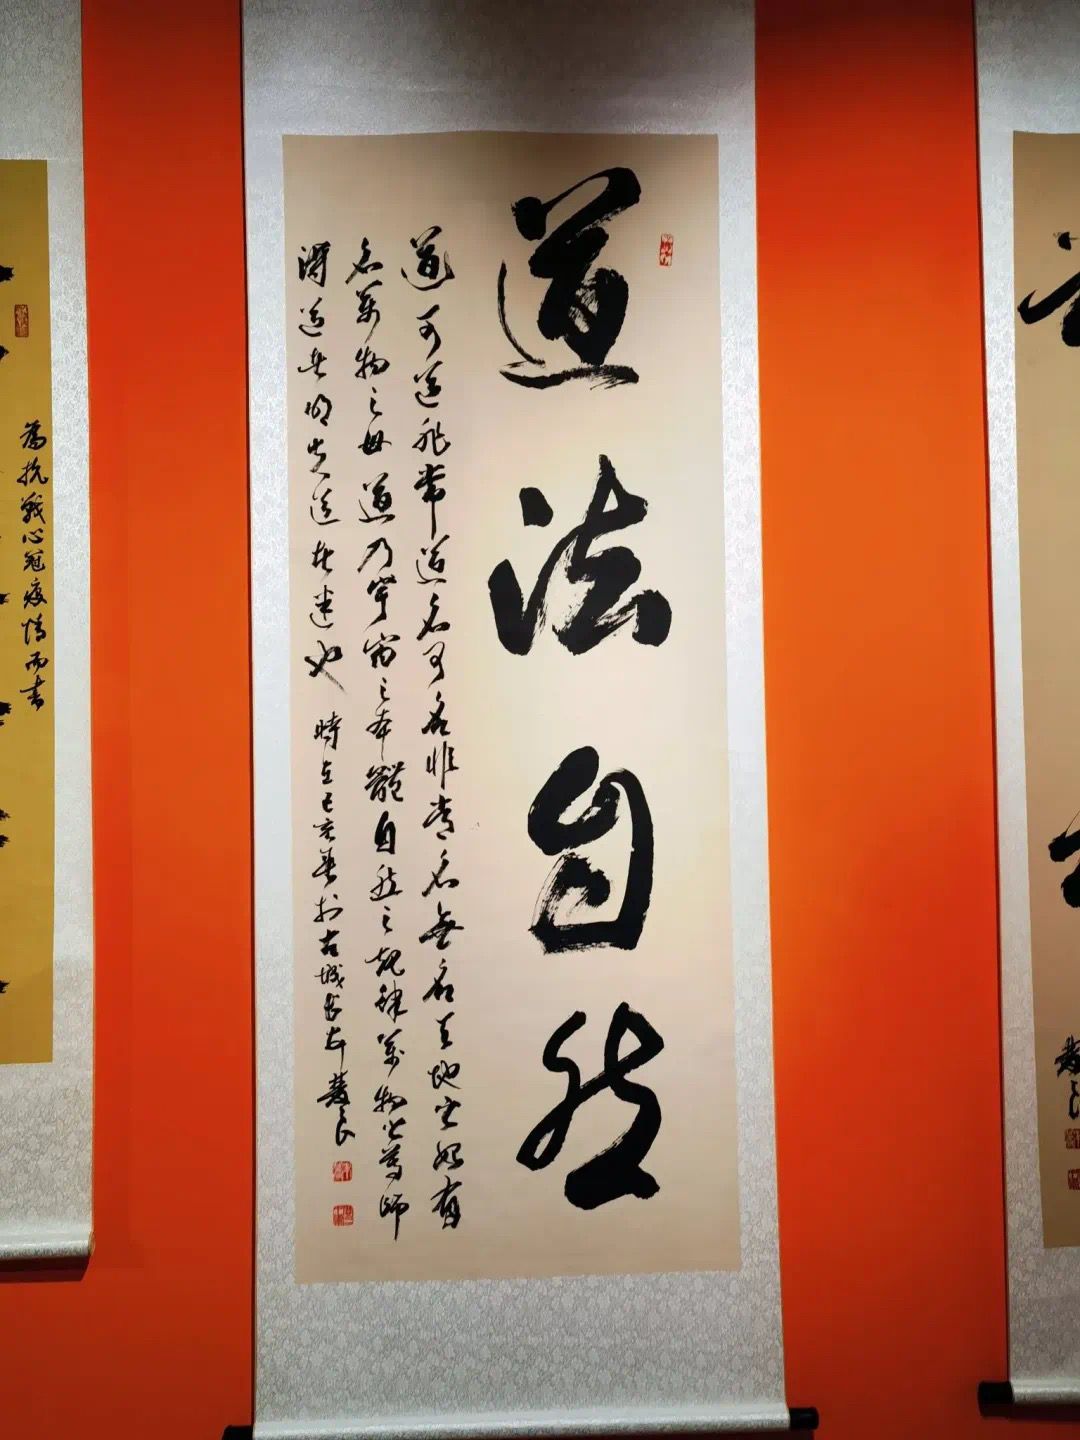 道法自然
道可道非常道名可名非常名無名天地之始有
名萬物之母道乃宇宙之本體自然之規律萬物必尊師
得道者明失道者迷也 時在己亥春於古城長安
為抗戰心冠疫情而書